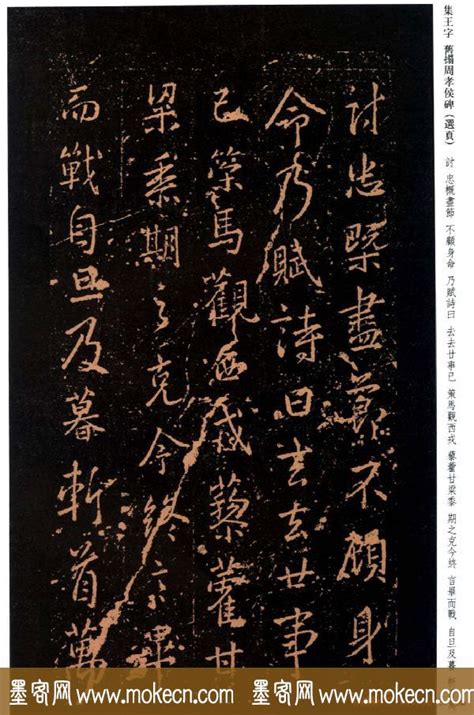 集王字 舊搨周孝侯碑(選頁) 討 忠概盡節 不顧身命 乃賦詩曰 去去廿事已 策馬觀西戎 藜藿甘梁黍 期之克今終 言畢而戰 自旦及暮
討忠槩盡節不顧身
命乃賦詩曰去去廿事
已策馬觀西戎藜藿甘
梁黍期之克令終言畢
而戰自旦及暮斬首萬
墨客网 www.mokecn.com 墨客网 www.mokecn.com